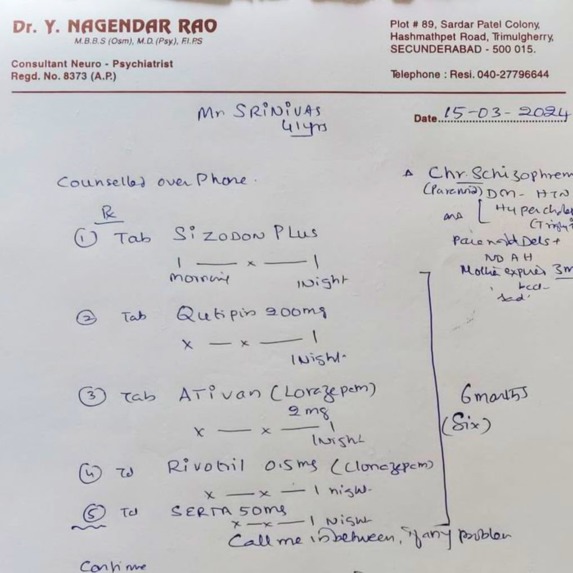 Dr. Y. NAGENDAR RAO
M.B.B.S (Osm), M.D. (Psy.), F.I.P.S
Consultant Neuro - Psychiatrist
Regd. No. 8373 (A.P.)
Plot # 89, Sardar Patel Colony,
Hashmathpet Road, Trimulgherry,
SECUNDERABAD - 500 015.
Telephone : Resi. 040-27796644
Date 15-03-2024
Mr SRINIVAS
41 yrs
Counselled over Phone.
Chr. Schizophren
(Paranoid) DM - HTN
and Hyperchole
Paranoid Dels +
NO AH
expired 3m
sad
Rx
① Tab SIZODON PLUS
1 — x — 1
Morning 1Night
② Tab Qutipin 200mg
x — x — 1
1Night.
③ Tab ATivan (Lorazepam)
2mg
x — x — 1
1Night
④ Td Rivotril 0.5mg (Clonazepam)
x — x — 1 night.
⑤ Td SERTA 50mg
x — x — 1 Night
6 months
(Six)
Call me inbetween, if any problem
Continue